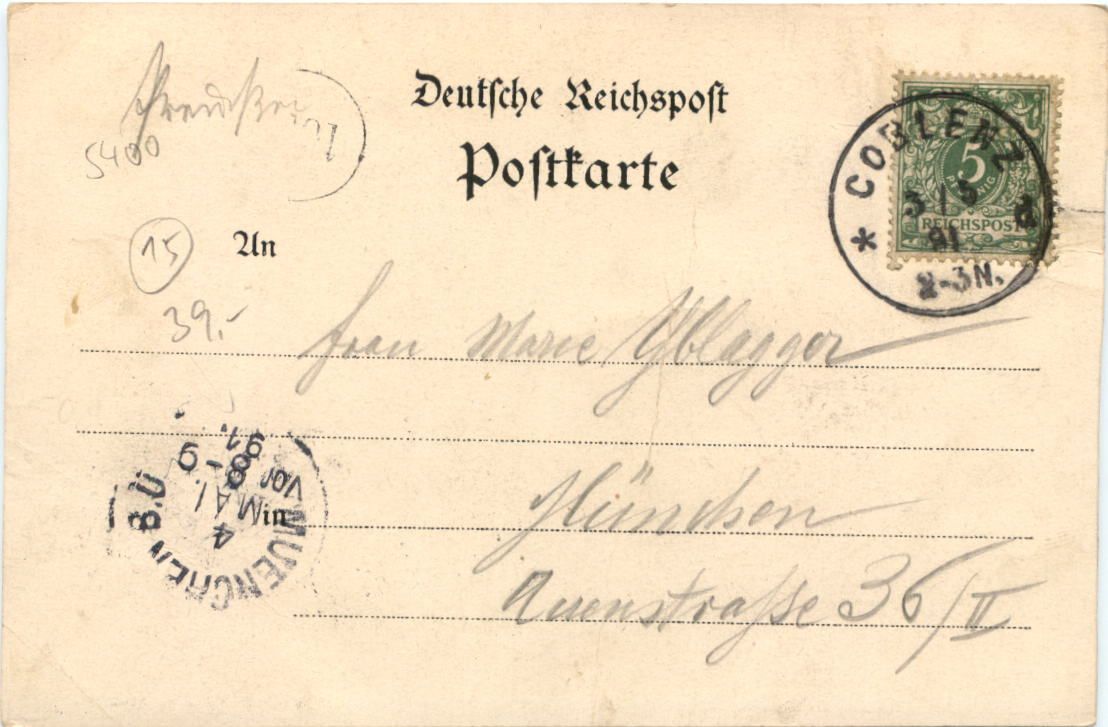 Deutsche Reichspost
Postkarte
5400
COBLENZ
5
PFENNIG
REICHSPOST
3/5
91
2-3N.
15
An
39,-
Frau Marie Yblagger
in München
MUENCHEN B.Ü
4 MAI
Vor 8-9
91
Auenstraße 36/II